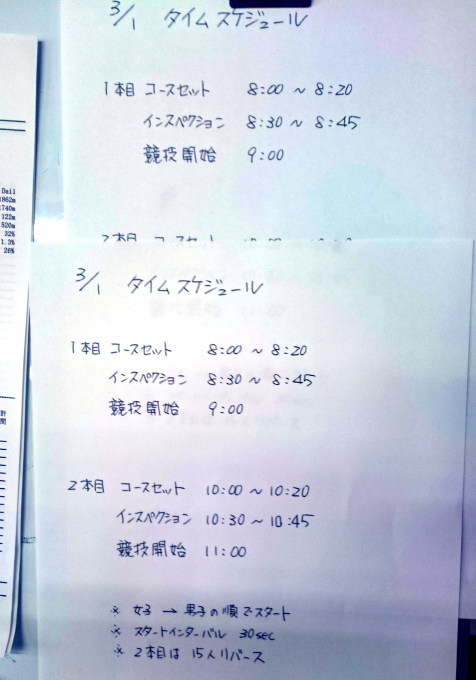 3/1 タイムスケジュール
1本目 コースセット 8:00 ~ 8:20
インスペクション 8:30 ~ 8:45
競技開始 9:00
2本目 コースセット
Dail
1862m
1740m
122m
520m
32%
1.3%
26%
計
間
3/1 タイムスケジュール
1本目 コースセット 8:00 ~ 8:20
インスペクション 8:30 ~ 8:45
競技開始 9:00
2本目 コースセット 10:00 ~ 10:20
インスペクション 10:30 ~ 10:45
競技開始 11:00
※ 女子 → 男子の順でスタート
※ スタートインターバル 30sec
※ 2本目は 15人リバース